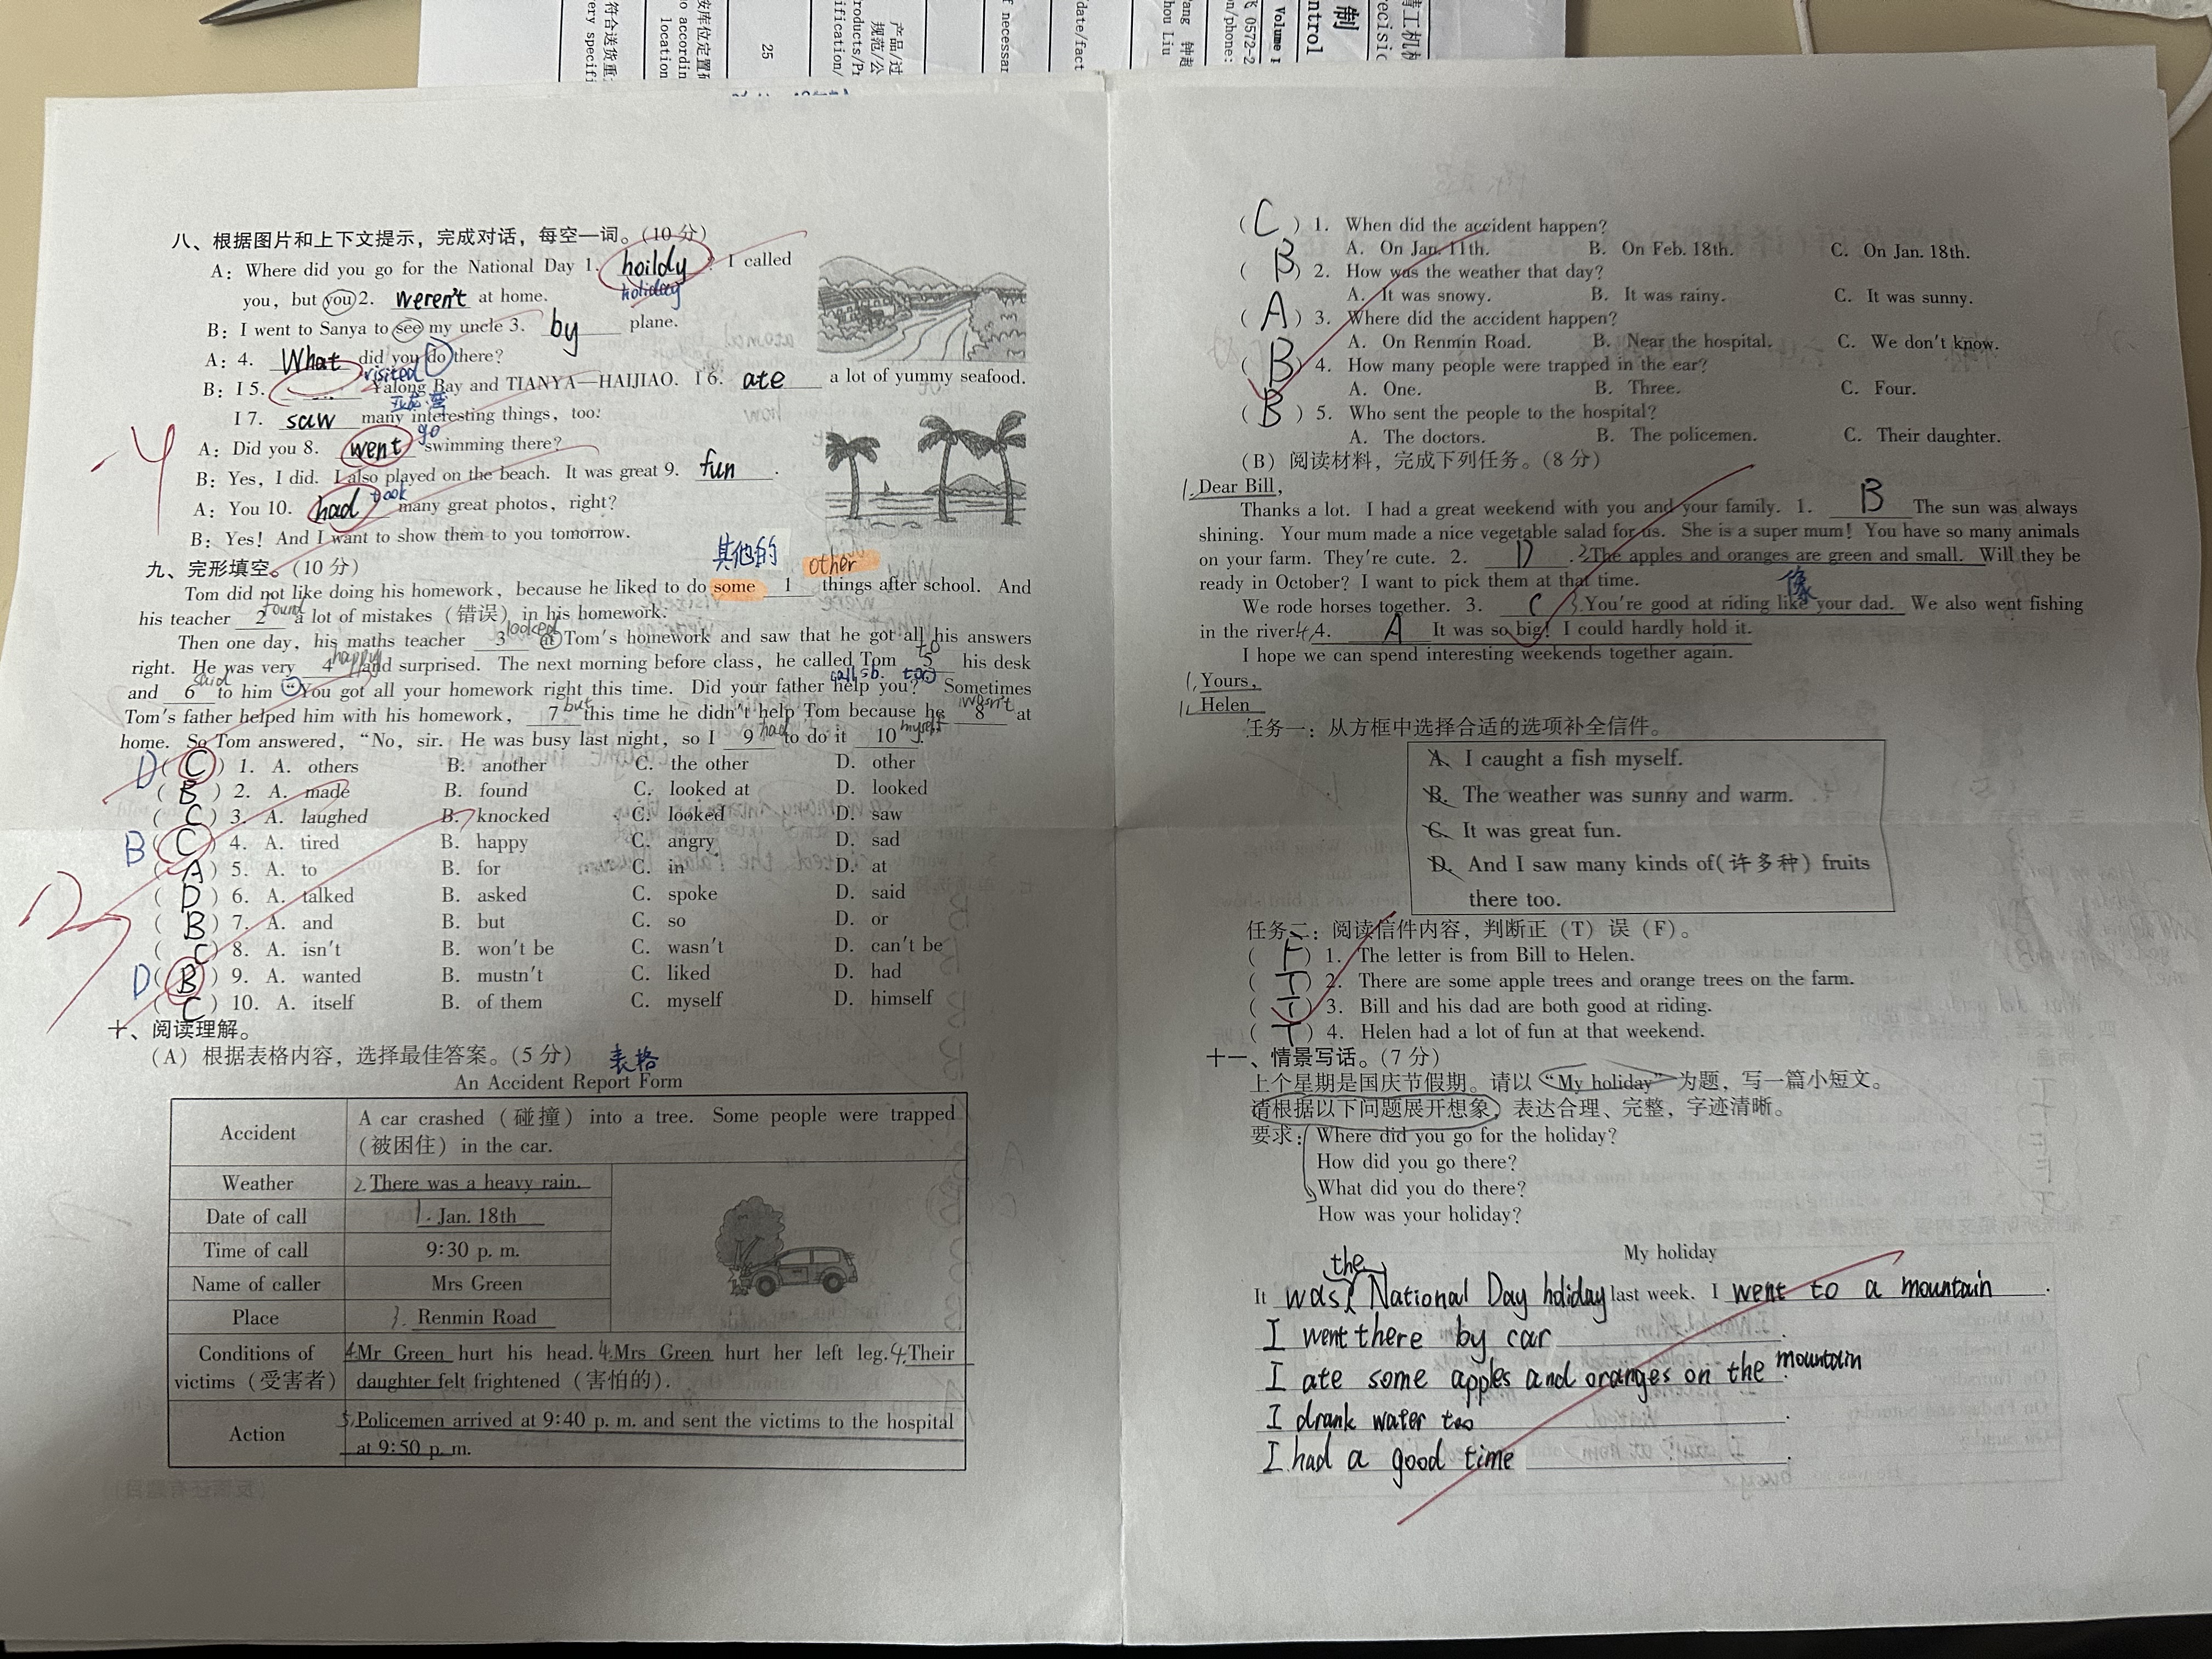 八、根据图片和上下文提示，完成对话，每空一词。(10 分)
A: Where did you go for the National Day 1. hoildy ? I called
holiday
you, but you 2. weren't at home.
B: I went to Sanya to see my uncle 3. by plane.
A: 4. What did you do there?
visited
B: I 5. Yalong Bay and TIANYA—HAIJIAO. I 6. ate a lot of yummy seafood.
亚龙湾
I 7. saw many interesting things, too!
go
A: Did you 8. went swimming there?
B: Yes, I did. I also played on the beach. It was great 9. fun .
took
A: You 10. had many great photos, right?
B: Yes! And I want to show them to you tomorrow.
-4
九、完形填空。(10 分)
其他的 other
Tom did not like doing his homework, because he liked to do some 1 things after school. And
found
his teacher 2 a lot of mistakes (错误) in his homework.
looked
Then one day, his maths teacher 3 at Tom's homework and saw that he got all his answers
happy to
right. He was very 4 and surprised. The next morning before class, he called Tom 5 his desk
said call sb. to
and 6 to him "You got all your homework right this time. Did your father help you?" Sometimes
but wasn't
Tom's father helped him with his homework, 7 this time he didn't help Tom because he 8 at
had myself
home. So Tom answered, "No, sir. He was busy last night, so I 9 to do it 10 ."
D ( C ) 1. A. others B. another C. the other D. other
( B ) 2. A. made B. found C. looked at D. looked
( C ) 3. A. laughed B. knocked C. looked D. saw
B ( C ) 4. A. tired B. happy C. angry D. sad
( A ) 5. A. to B. for C. in D. at
( D ) 6. A. talked B. asked C. spoke D. said
( B ) 7. A. and B. but C. so D. or
( C ) 8. A. isn't B. won't be C. wasn't D. can't be
D ( B ) 9. A. wanted B. mustn't C. liked D. had
( C ) 10. A. itself B. of them C. myself D. himself
十、阅读理解。
(A) 根据表格内容，选择最佳答案。(5 分) 表格
An Accident Report Form
Accident A car crashed (碰撞) into a tree. Some people were trapped
(被困住) in the car.
Weather 2. There was a heavy rain.
Date of call 1. Jan. 18th
Time of call 9:30 p. m.
Name of caller Mrs Green
Place 3. Renmin Road
Conditions of
victims (受害者) 4. Mr Green hurt his head. 4. Mrs Green hurt her left leg. 4. Their
daughter felt frightened (害怕的).
Action 5. Policemen arrived at 9:40 p. m. and sent the victims to the hospital
at 9:50 p. m.
( C ) 1. When did the accident happen?
A. On Jan. 11th. B. On Feb. 18th. C. On Jan. 18th.
( B ) 2. How was the weather that day?
A. It was snowy. B. It was rainy. C. It was sunny.
( A ) 3. Where did the accident happen?
A. On Renmin Road. B. Near the hospital. C. We don't know.
( B ) 4. How many people were trapped in the ear?
A. One. B. Three. C. Four.
( B ) 5. Who sent the people to the hospital?
A. The doctors. B. The policemen. C. Their daughter.
(B) 阅读材料，完成下列任务。(8 分)
1. Dear Bill,
Thanks a lot. I had a great weekend with you and your family. 1. B The sun was always
shining. Your mum made a nice vegetable salad for us. She is a super mum! You have so many animals
on your farm. They're cute. 2. D 2. The apples and oranges are green and small. Will they be
ready in October? I want to pick them at that time.
像
We rode horses together. 3. C 3. You're good at riding like your dad. We also went fishing
in the river. 4. 4. A It was so big! I could hardly hold it.
I hope we can spend interesting weekends together again.
1. Yours,
1. Helen
任务一：从方框中选择合适的选项补全信件。
A. I caught a fish myself.
B. The weather was sunny and warm.
C. It was great fun.
D. And I saw many kinds of (许多种) fruits
there too.
任务二：阅读信件内容，判断正（T）误（F）。
( F ) 1. The letter is from Bill to Helen.
( T ) 2. There are some apple trees and orange trees on the farm.
( T ) 3. Bill and his dad are both good at riding.
( T ) 4. Helen had a lot of fun at that weekend.
十一、情景写话。(7 分)
上个星期是国庆节假期。请以“My holiday”为题，写一篇小短文。
请根据以下问题展开想象，表达合理、完整，字迹清晰。
要求：Where did you go for the holiday?
How did you go there?
What did you do there?
How was your holiday?
My holiday
the
It was National Day holiday last week. I went to a mountain .
I went there by car .
I ate some apples and oranges on the mountain
I drank water too .
I had a good time .